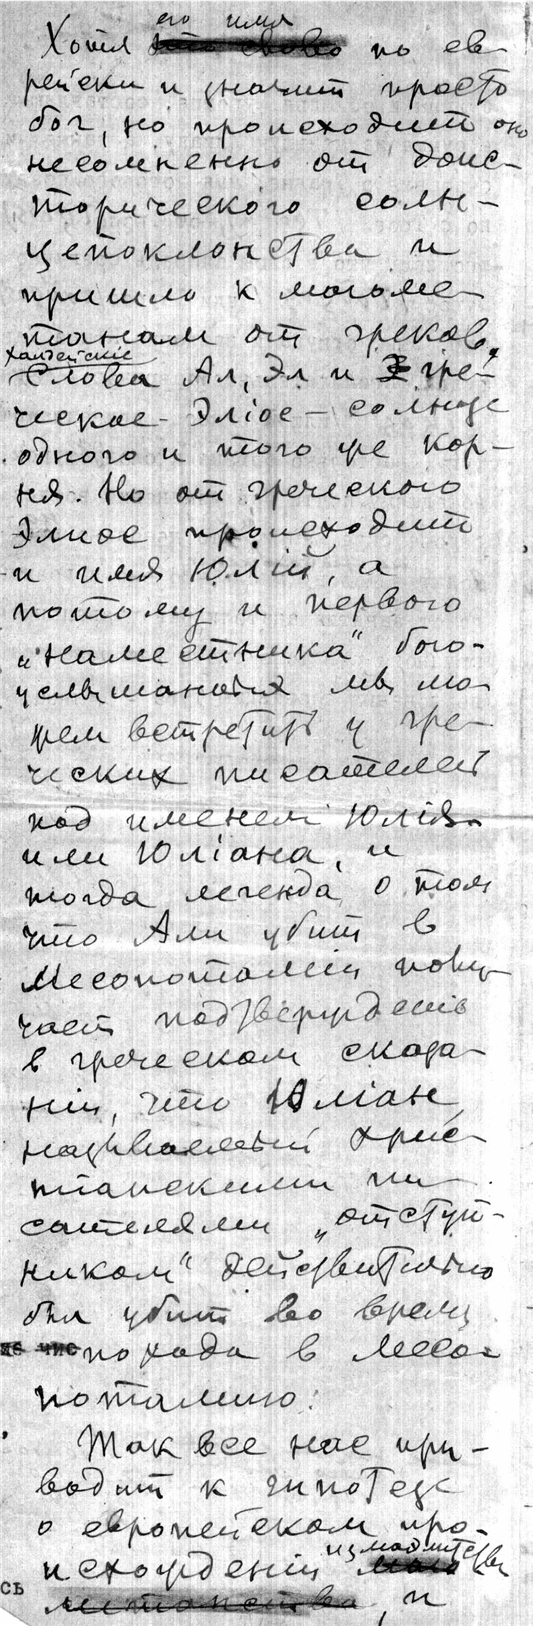 его имя
Хотя это слово по ев-
рейски и значит просто
бог, но происходит оно
несомненно от доис-
торического солн-
цепоклонства и
пришло к магоме-
танам от греков.
халдейскіе
Слова Ал, Эл и гре-
ческое Эліос – солнце
одного и того же кор-
ня. Но от греческого
Элиос происходит
и имя Юлій, а
потому и первого
„наместника“ бого-
услышания мы мо-
жем встретить у гре-
ческих писателей
под именем Юлія
или Юліана, и
тогда легенда о том
что Али убит в
Месопотаміи полу-
чает подтвержденіе
в греческом сказа-
ніи, что Юліан,
называемый хрис-
тианскими пи-
сателями „отступ-
ником“ действительно
был убит во время
не чис похода в Месо-
потамию.
Так все нас при-
водит к гипотезе
о европейском про-
исхожденіи измаилтства
сь магометанства, и